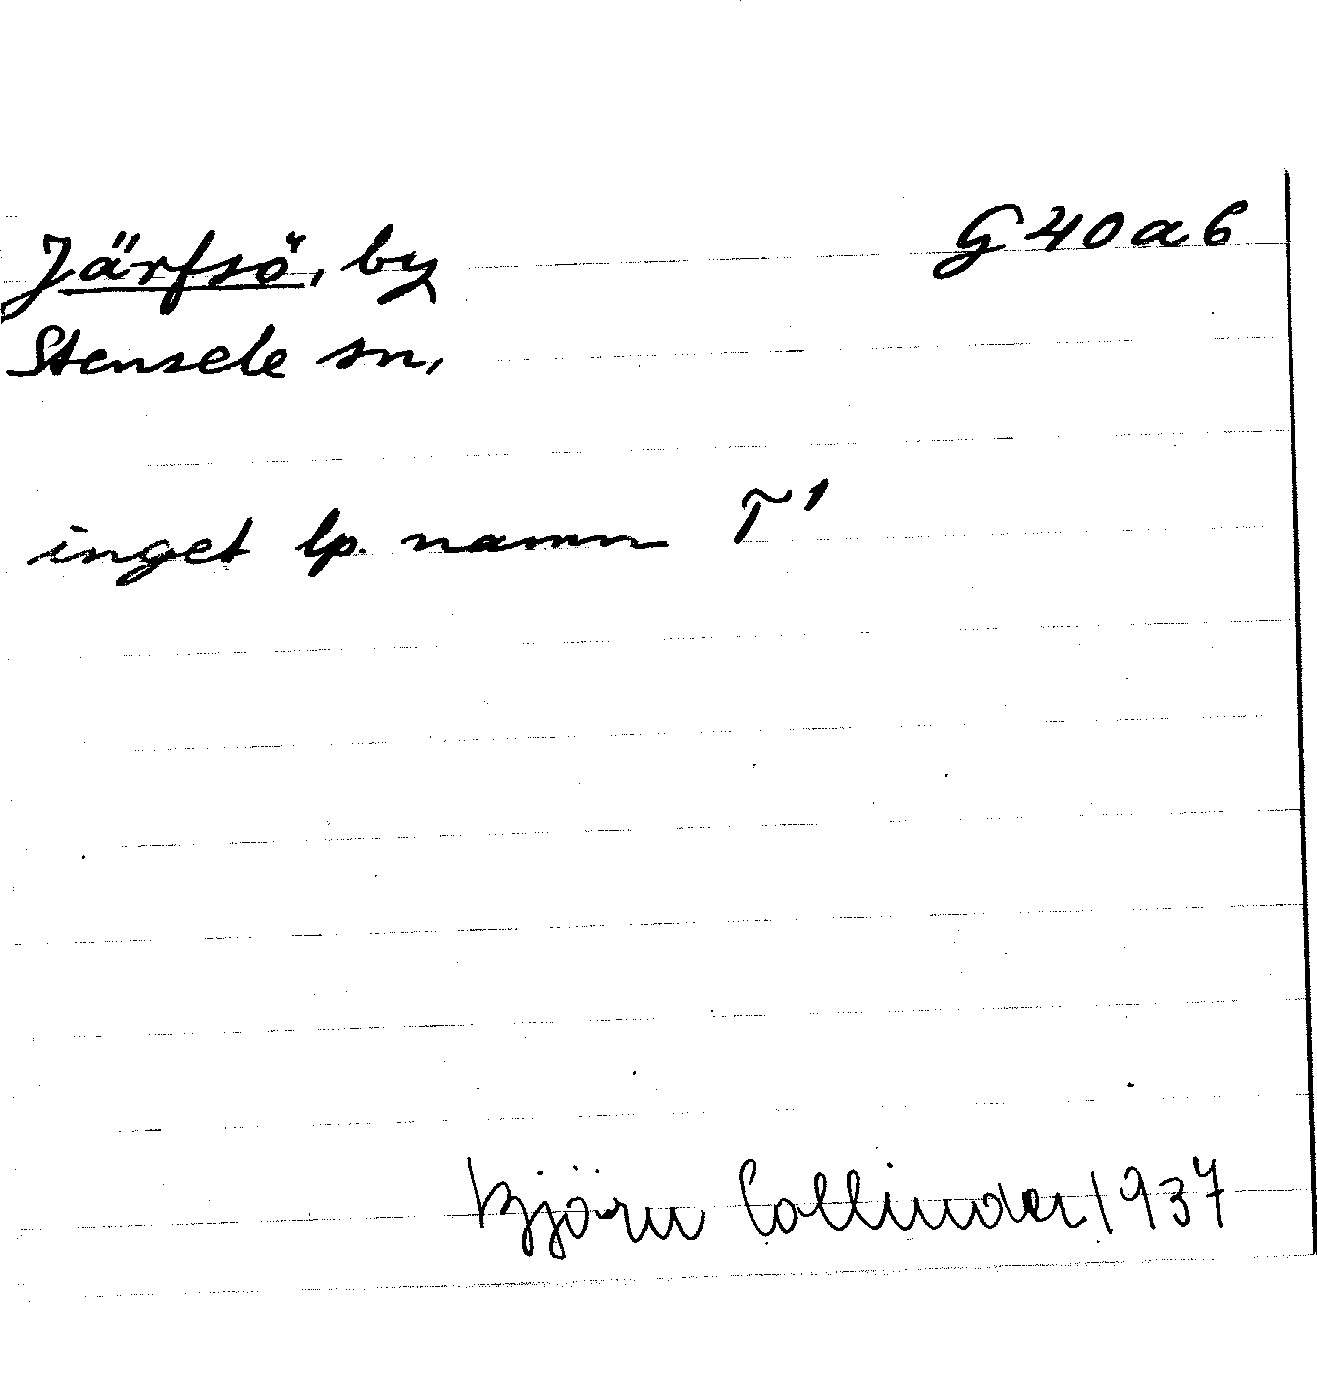 Järfsö, by G 40 a 6
Stensele sn,
inget lp. namn T¹
Björn Collinder 1937